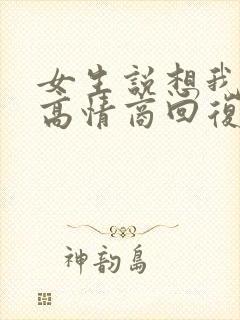 女生說想我
高情商回復
神韵島